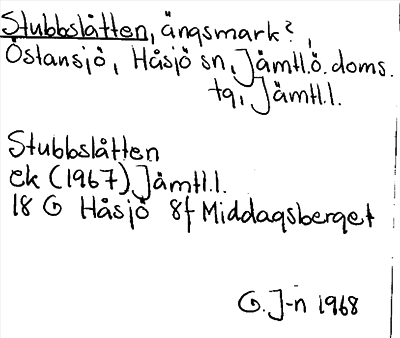 Stubbslåtten, ängsmark?,
Östansjö, Håsjö sn, Jämtl.ö. doms.
tg, Jämtl.l.
Stubbslåtten
ek (1967) Jämtl.l.
18 G Håsjö 8f Middagsberget
G. J-n 1968